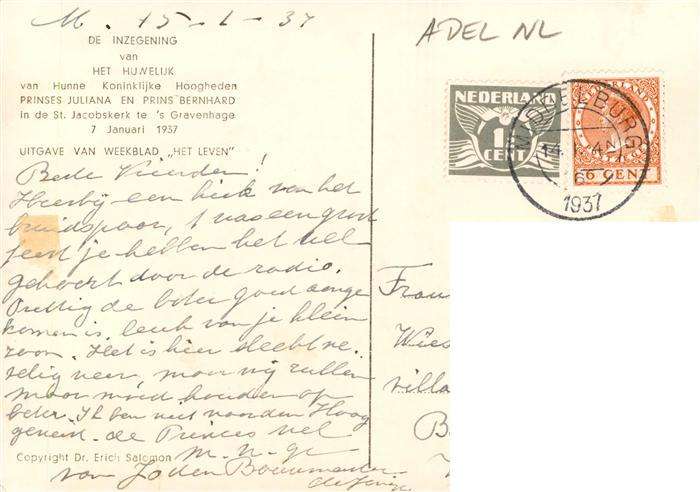 M. 15-1-37
ADEL NL
DE INZEGENING
van
HET HUWELIJK
van Hunne Koninklijke Hoogheden
PRINSES JULIANA EN PRINS BERNHARD
in de St. Jacobskerk te 's Gravenhage
7 Januari 1937
UITGAVE VAN WEEKBLAD „HET LEVEN"
NEDERLAND
1
CENT
NEDERLAND
6 CENT
MIDDELBURG
1937
Beste Vrienden!
Hierbij een kiek van het
bruidspaar, 't was een groot
feest je hebben het wel
gehoord door de radio.
Prettig de boter goed aange
komen is, leuk van je klein
zoon. Het is hier slecht
weer, maar wij zullen
maar moed houden op
beter. Ik ben niet naar den Haag
geweest. de Princes wel
Copyright Dr. Erich Salomon
m. v. g.
van
Fran
Wies
villa
B